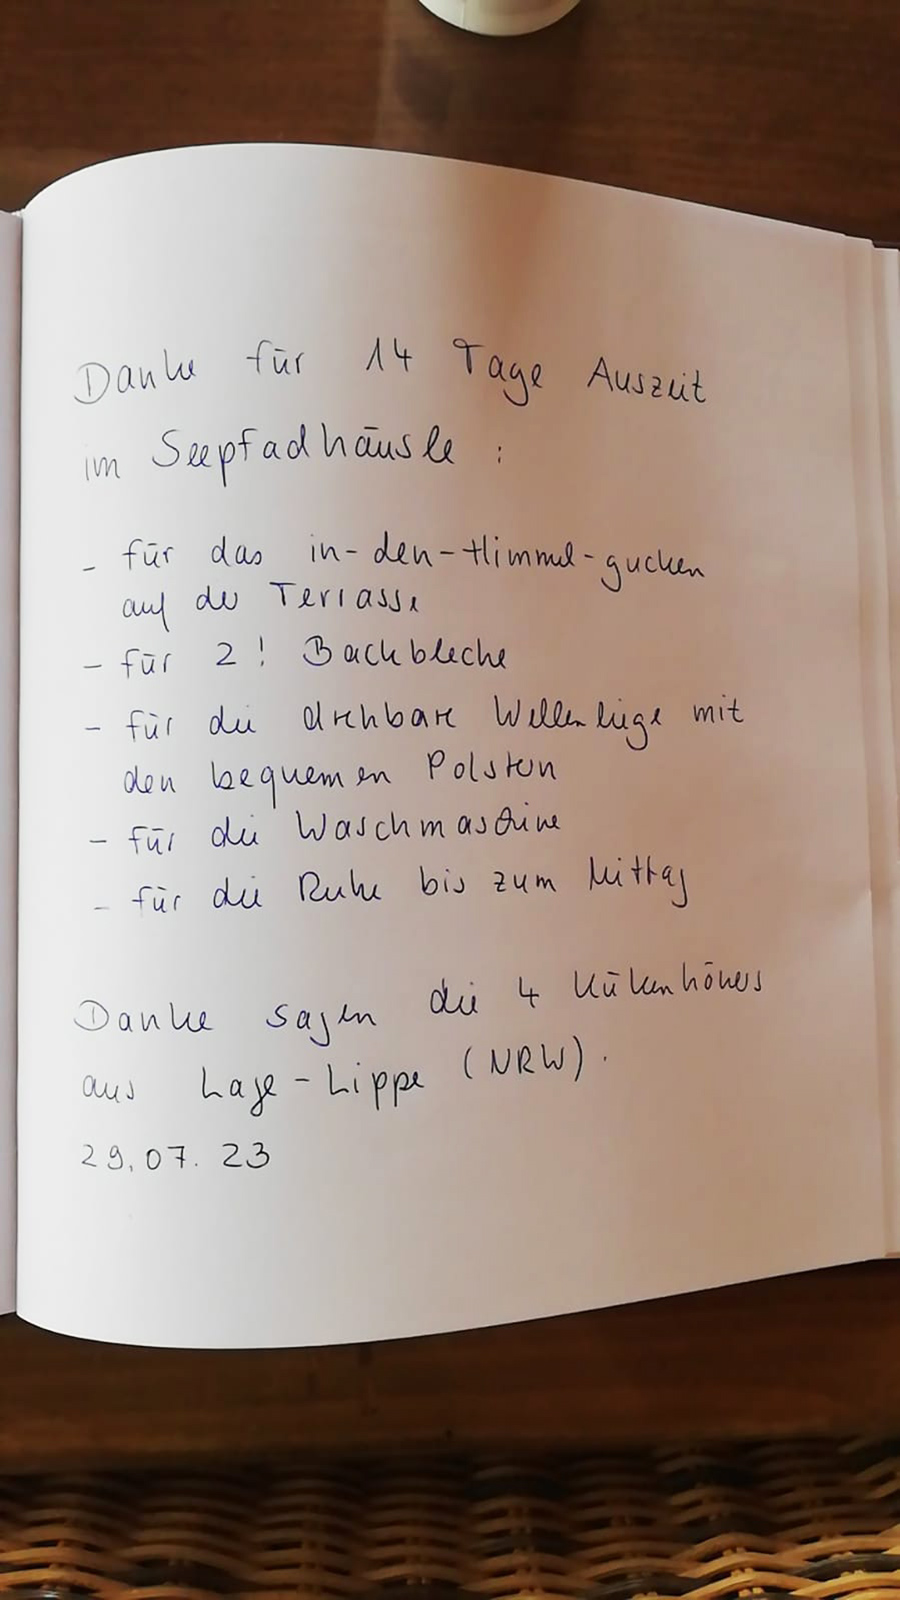 Danke für 14 Tage Auszeit
im Seepfadhäusle :
- für das in-den-Himmel-gucken
auf der Terrasse
- für 2! Backbleche
- für die drehbare Wellenliege mit
den bequemen Polstern
- für die Waschmaschine
- für die Ruhe bis zum Mittag
Danke sagen die 4 Kükenhöners
aus Lage-Lippe (NRW).
29.07.23